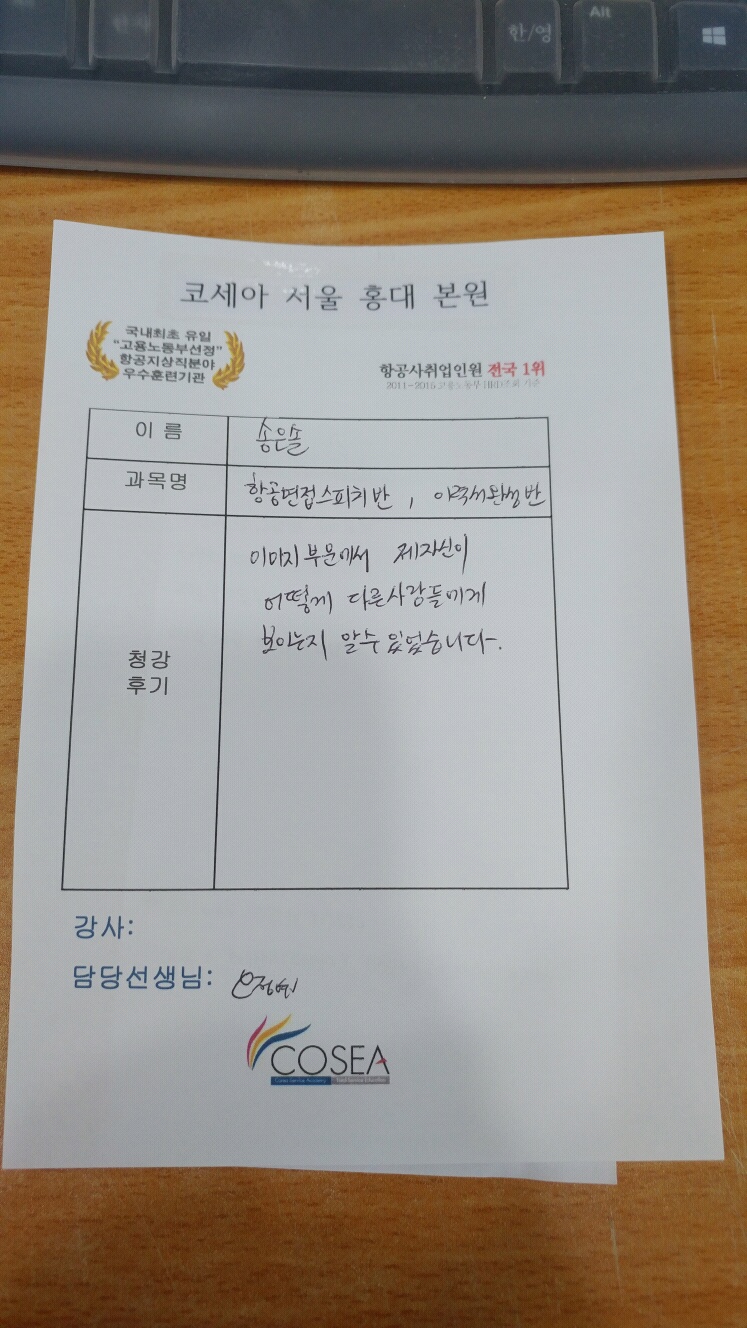 한/영
Alt
코세아 서울 홍대 본원
국내최초 유일
"고용노동부선정"
항공지상직분야
우수훈련기관
항공사취업인원 전국 1위
2011~2015 고용노동부
이 름 송은솔
과목명 항공면접스피치반, 이력서완성반
청강
후기
이미지부문에서 제자신이
어떻게 다른사람들에게
보이는지 알수 있었습니다.
강사:
담당선생님:
COSEA